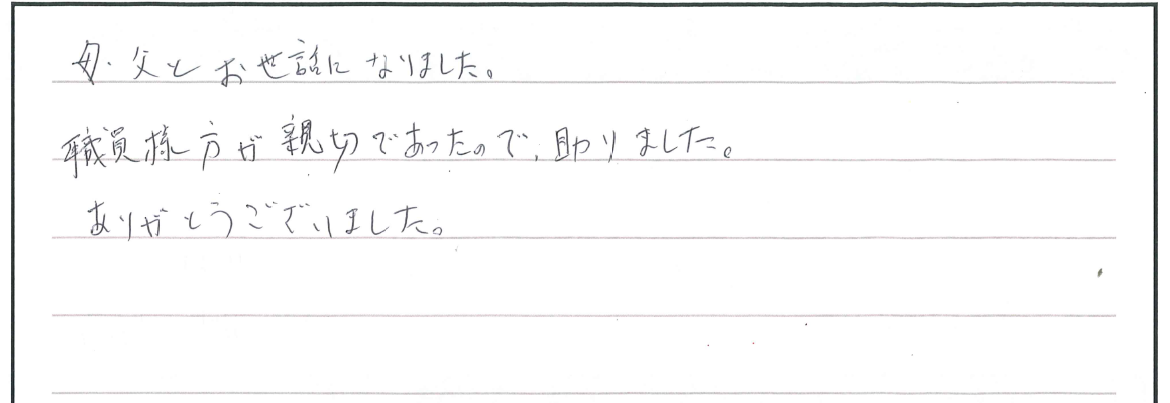 母・父とお世話になりました。
職員様方が親切であったので、助りました。
ありがとうございました。